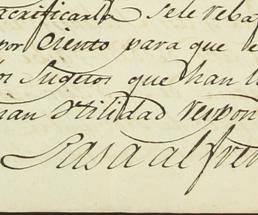 acrificarla se le reba
por Ciento para que e
os Sugetos que han l
nan Utilidad respon
Pasa al fren